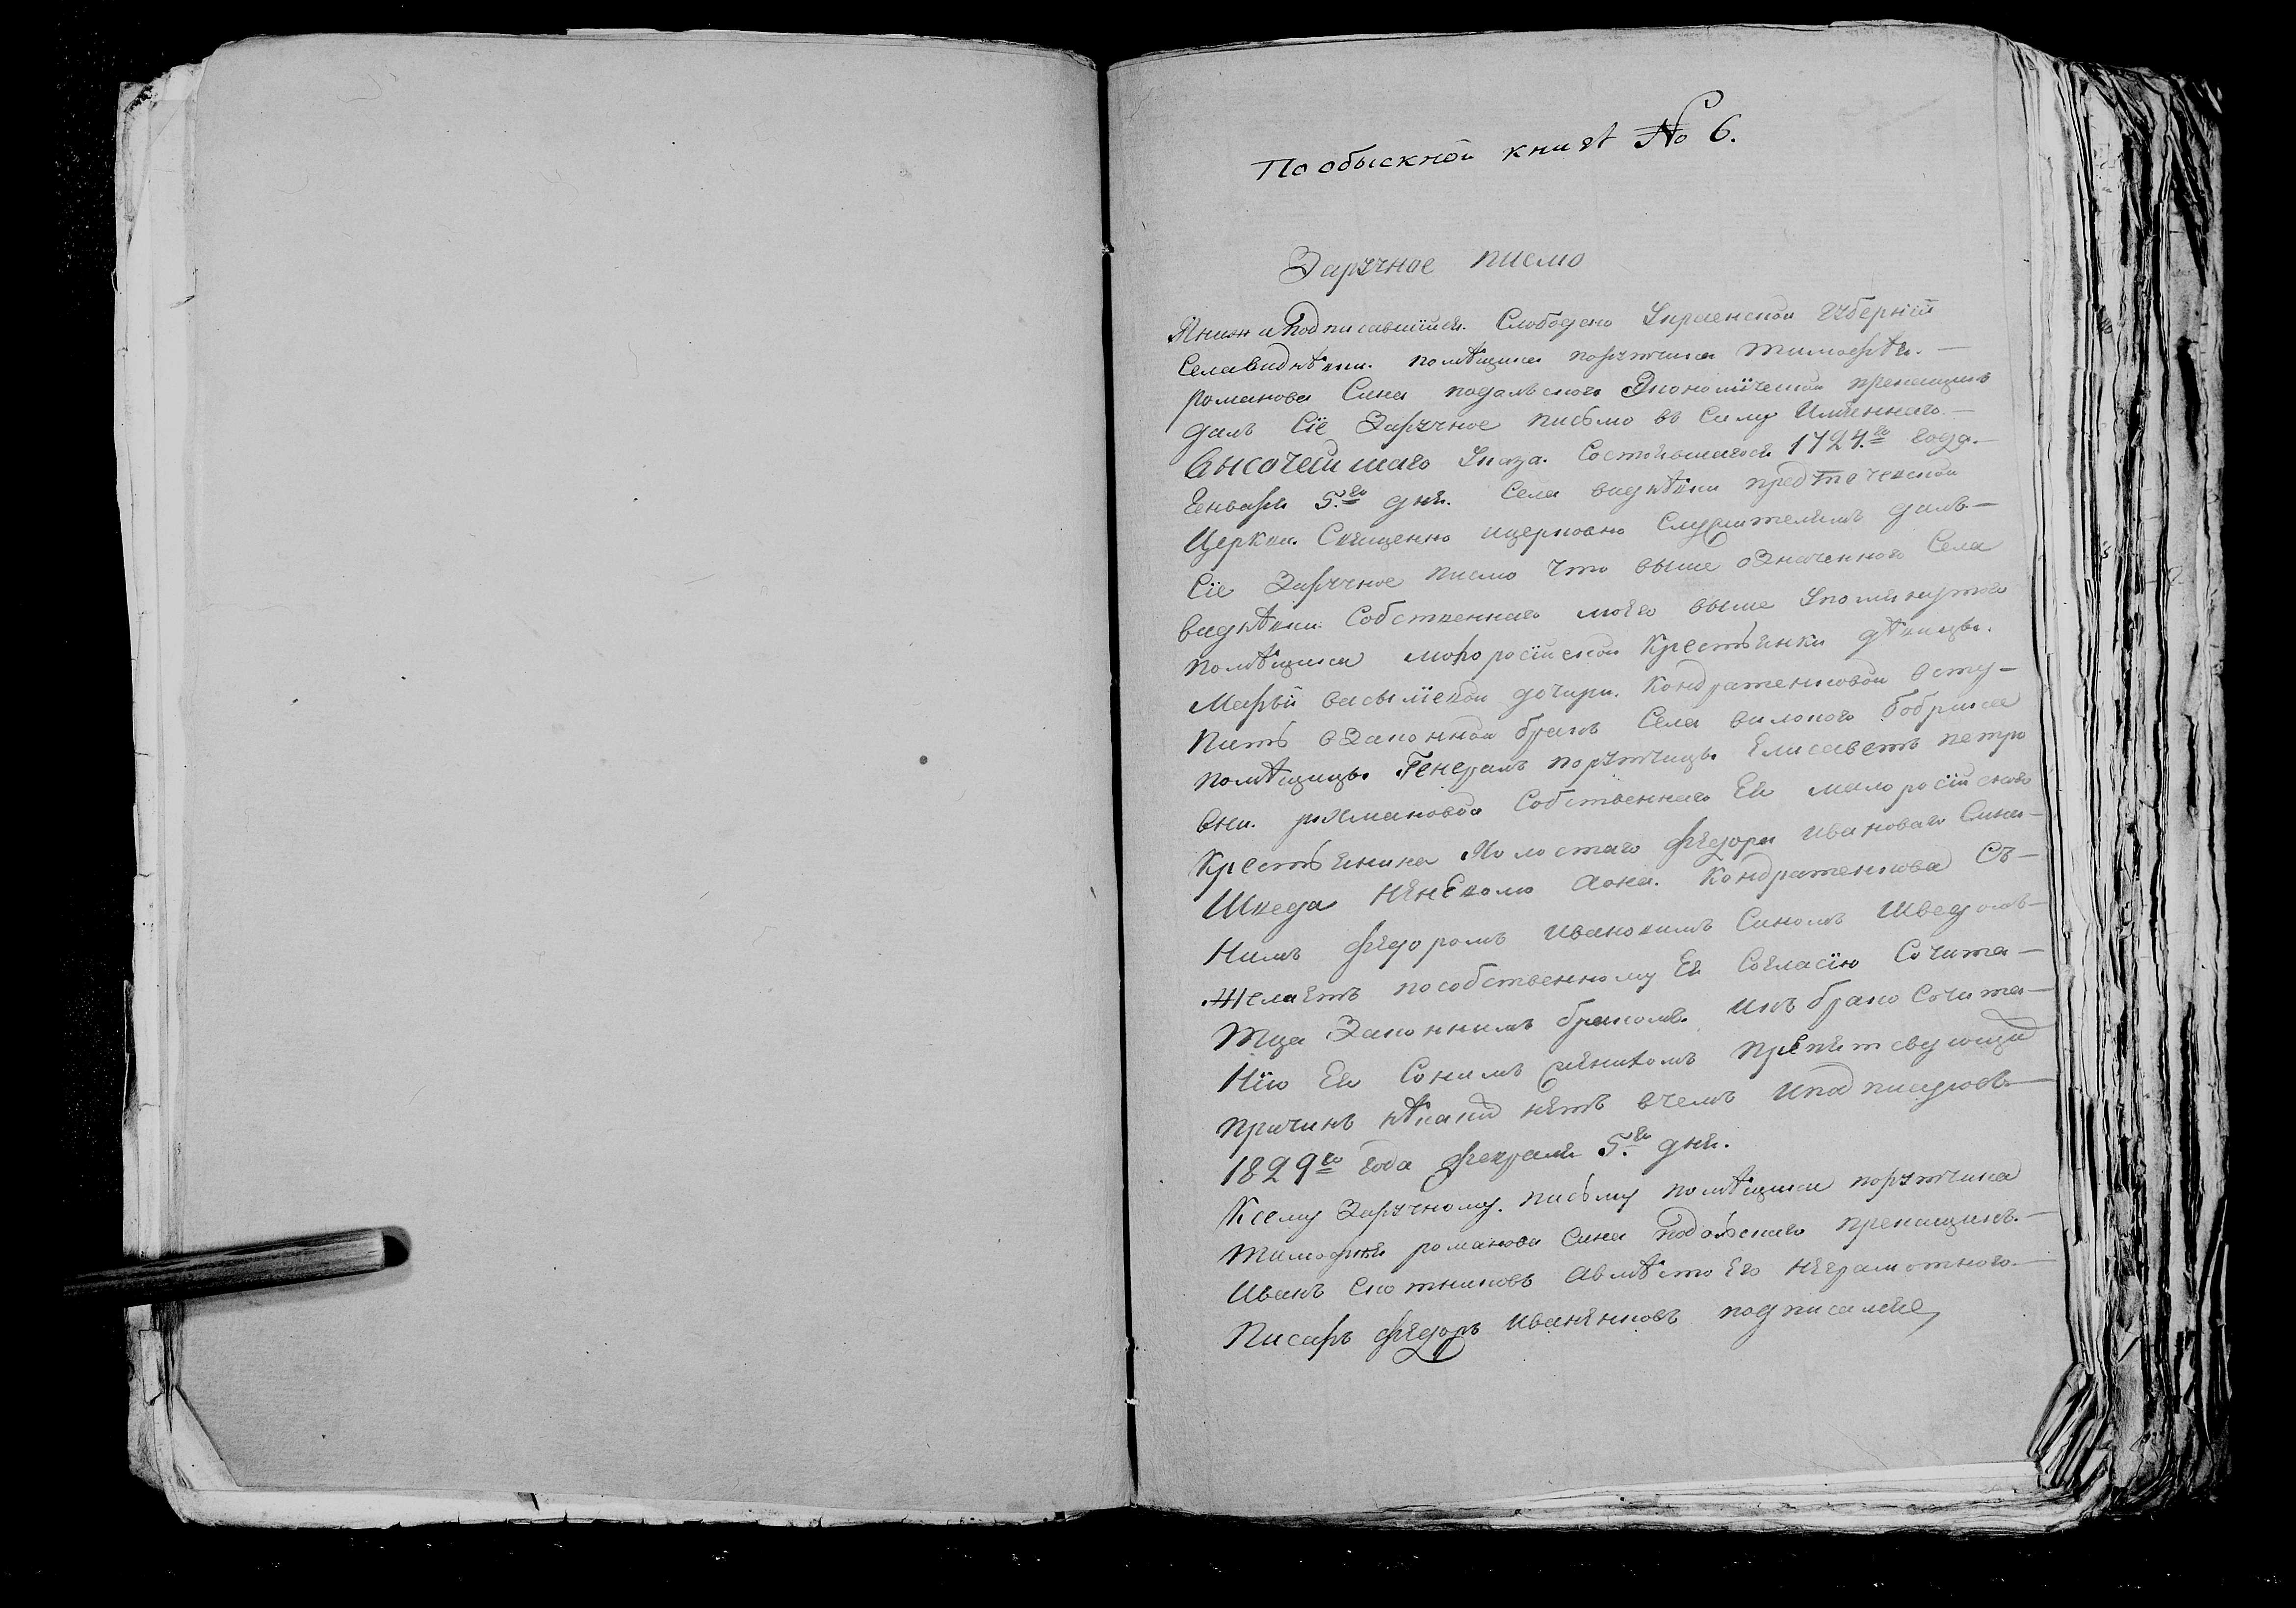 По обыскной книгѣ № 6.
Заручное писмо
Я нижи подписавшійся. Слободско Украенской Губерніи
Села Видѣвки. помѣщика порутчика тимофѣя.—
романова Сина подолского Экономіческой прекащикъ
далъ Сіе Заручное письмо въ Силу Имяннаго—
Высочеишаго Указа. Состоявшагося 1724.го года.—
Генваря 5.го дня. Села видѣвки предточеской
Церкви. Священно ицерковно Служителямъ далъ—
Сіе Заручное писмо что выше означенного Села
видѣвки. Собственнаго моего выше Упомянутого
помѣщика моросійской Крестьянки дѣвицы.
Марьи васыліевой дочири. Кондратенковой всту—
пить взаконной бракъ Села вилкого бобрика
помѣщицы. Генералъ порутчицы. Елисаветъ петро
вни. рахмановой Собственнаго Ея малоросійского
Крестьянина Холостаго фѣдора ивановаго Сина—
Шведа Кондратенкова Съ—
Нимъ фѣдоромъ Ивановимъ Синомъ Шведомъ—
Желаетъ пособственному Ея Согласію Сочита—
тца Законнимъ бракомъ. Икъ брако Сочита—
Нію Ея Сонимъ женихомъ препятсвующи
причинъ нѣкаки нѣтъ вчемъ Иподписуюсь.—
1829го Года февраля 5.го дня.
Ксему Заручному. письму помѣщика порутчика
тимофѣя романова Сина подолского прекащикъ.—
Иванъ Скотниковъ Авмѣсто Его неграмотного.—
Писарь фѣдоръ Иваненковъ подписался